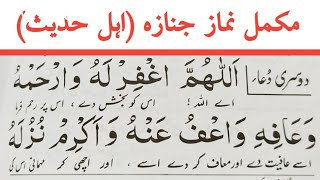 مکمل نماز جنازہ (اہل حدیث)
دوسری دُعاء: اَللّٰهُمَّ اغْفِرْ لَهٗ وَارْحَمْهُ
اے اللہ! اس کو بخش دے، اس پر رحم فرما
وَعَافِهٖ وَاعْفُ عَنْهُ وَاَكْرِمْ نُزُلَهٗ
اسے عافیت دے اور معاف کر دے اسے، اور اچھی کر مہمانی اس کی